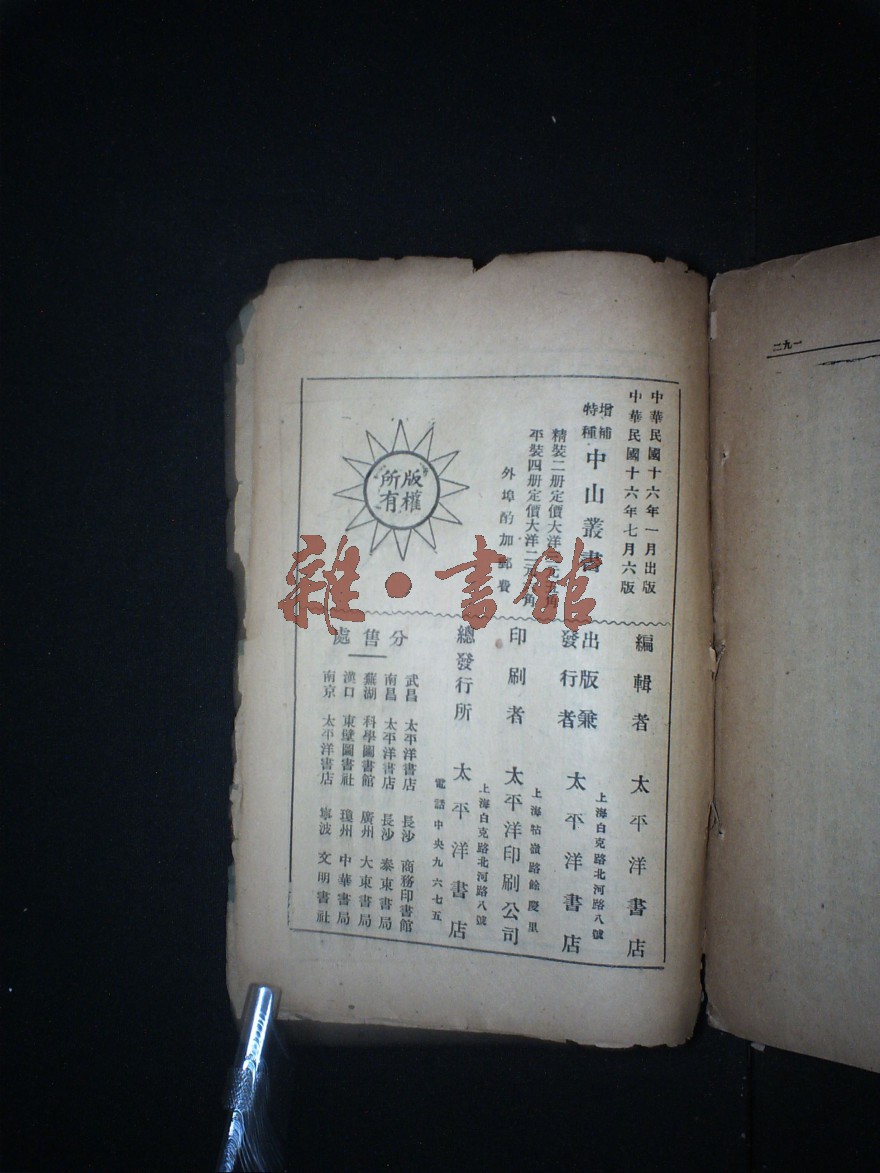 二九一
中華民國十六年一月出版
中華民國十六年七月六版
增補
特種
中山叢書
精裝二册定價大洋元角
平裝四册定價大洋二元角
外埠酌加郵費
版權
所有
編輯者 太平洋書店
出版兼
發行者
上海白克路北河路八號
太平洋書店
印刷者
上海牯嶺路餘慶里
太平洋印刷公司
總發行所
上海白克路北河路八號
太平洋書店
電話中央九六七五
分售處
武昌 太平洋書店 長沙 商務印書館
南昌 太平洋書店 長沙 泰東書局
蕪湖 科學圖書館 廣州 大東書局
漢口 東壁圖書社 瓊州 中華書局
南京 太平洋書店 寧波 文明書社
雜·書館